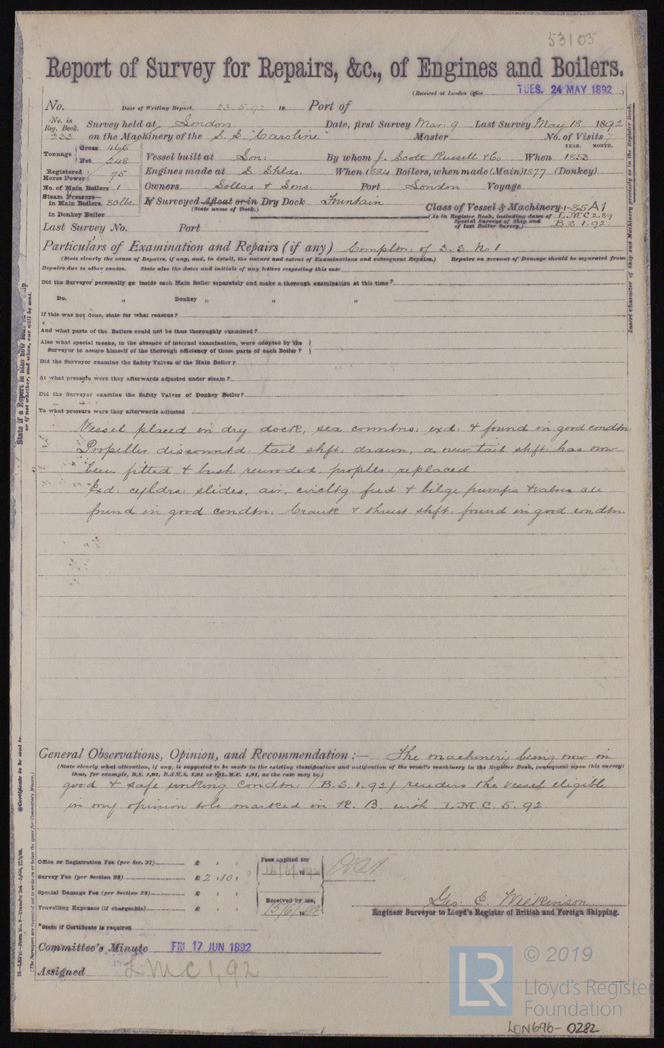 53105
Report of Survey for Repairs, &c., of Engines and Boilers.
(Received at London Office TUES. 24 MAY 1892)
No. Date of Writing Report 23.5.92 18 Port of
No. in Reg. Book. 233 Survey held at London Date, first Survey Mar. 9 Last Survey May 18 1892
on the Machinery of the S.S. "Caroline" Master No. of Visits 7
Tonnage Gross 466 Net 248 Vessel built at Lon: By whom J. Scott Russell & Co When 1853
YEAR. MONTH.
Registered Horse Power 75 Engines made at S. Shlds. When 1884 Boilers, when made (Main) 1877 (Donkey)
No. of Main Boilers 1 Owners & Sons. Port London Voyage
Steam Pressure in Main Boilers 30lbs. If Surveyed Afloat or in Dry Dock Fountain
(State name of Dock.)
in Donkey Boiler
Class of Vessel & Machinery A1
(As in Register Book, including dates of Special Surveys of Ship and of last Boiler Survey.) L.M.C. 2.89 B.S. 1.92
Last Survey No. Port
Particulars of Examination and Repairs (if any) Completn. of S.S. No 1
(State clearly the cause of Repairs, if any, and, in detail, the nature and extent of Examinations and subsequent Repairs.) Repairs on account of Damage should be separated from
Repairs due to other causes. State also the dates and initials of any letters respecting this case
Did the Surveyor personally go inside each Main Boiler separately and make a thorough examination at this time?
Do. " Donkey " " "
If this was not done, state for what reasons?
And what parts of the Boilers could not be thus thoroughly examined?
Also what special means, in the absence of internal examination, were adopted by the
Surveyor to assure himself of the thorough efficiency of those parts of each Boiler?
Did the Surveyor examine the Safety Valves of the Main Boiler?
At what pressure were they afterwards adjusted under steam?
Did the Surveyor examine the Safety Valves of Donkey Boiler?
To what pressure were they afterwards adjusted
Vessel placed in dry dock, sea conntns. exd. & found in good condtn
Propeller disconntd. tail shft. drawn, a new tail shft. has now
been fitted & bush rewooded, propller replaced
Exd. cyldrs. slides, air, circltg. feed & bilge pumps & valves all
found in good condtn. Crank & thrust shft. found in good condtn.
General Observations, Opinion, and Recommendation:— The machinery being now in
(State clearly what alteration, if any, is suggested to be made in the existing classification and notification of the vessel's machinery in the Register Book, consequent upon this survey:
thus, for example, B.S. 1,91, B.&M.S. 1,91 or L.M.C. 1,91, as the case may be.)
good & safe working condtn. (B.S. 1.92) renders the vessel eligible
in my opinion to be marked in R.B. with L.M.C. 5.92
Office or Registration Fee (per Sec. 27) £
Survey Fee (per Section 28) £ 2.10.0
Special Damage Fee (per Section 28) £
Travelling Expenses (if chargeable) £
Fees applied for
Received by me,
*State if Certificate is required
Geo. E. Wilkinson
Engineer Surveyor to Lloyd's Register of British and Foreign Shipping.
Committee's Minute FRI 17 JUN 1892
Assigned LMC 1,92
© 2019
LR
Lloyd's Register
Foundation
LON696-0282